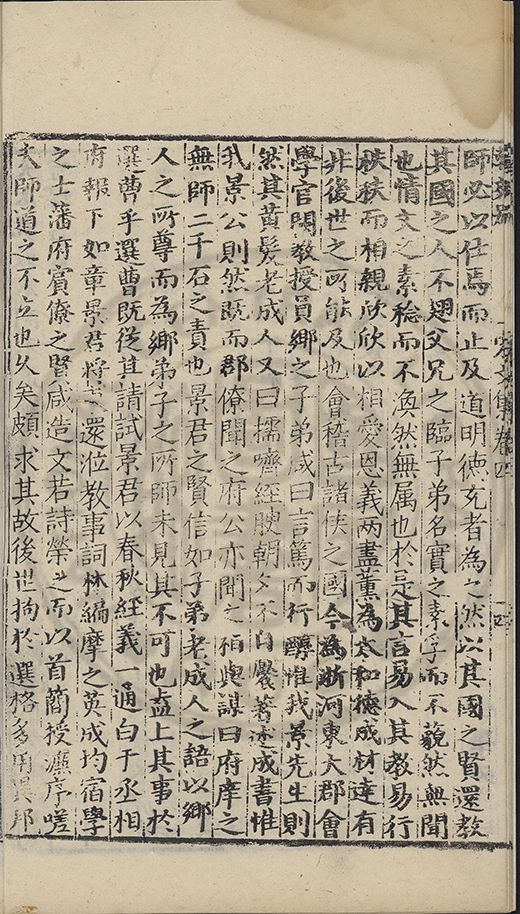 師必以仕焉而止及道明德充者為之然以其國之賢還教
其國之人不翅父兄之臨子弟名實之素孚而不藐然無聞
也情文之素稔而不渙然無属也於是其言易入其教易行
秩秩而相親欣欣以相愛恩義兩盡薰為太和德成材達有
非後世之所能及也會稽古諸侯之國今為浙河東大郡會
學官闕教授員鄉之子弟咸曰言篤而行醇惟我景先生則
然其黄髮老成人又曰擩嚌經腴朝夕不自餍著述成書惟
我景公則然既而郡僚聞之府公亦聞之相與謀曰府庠之
無師二千石之責也景君之賢信如子弟老成人之語以鄉
人之所尊而為鄉弟子之所師未見其不可也盍上其事於
選曹乎選曹既從其請試景君以春秋經義一通白于丞相
府報下如章景君將還涖教事詞林編摩之英成均宿學
之士藩府賓僚之賢咸造文若詩榮之而以首簡授濂序嗟
夫師道之不立也久矣頗求其故後世拘於選格多用異邦
宋文集卷四